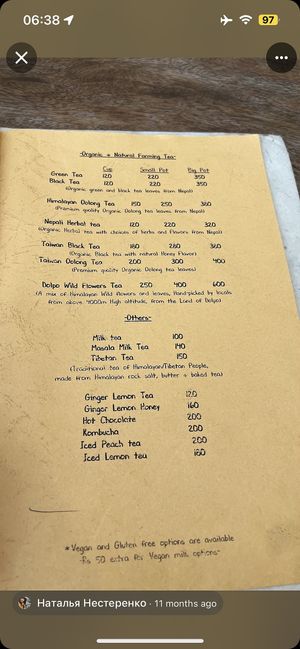 06:38
97
-Organic + Natural Farming Tea-
Cup Small Pot Big Pot
Green Tea 120 220 350
Black Tea 120 220 350
(Organic green and black tea leaves from Nepal)
Himalayan Oolong Tea 150 250 380
(Premium quality Organic Oolong tea leaves from Nepal)
Nepali Herbal tea 120 220 320
(Organic Herbal tea with choices of herbs and flavors from Nepal)
Taiwan Black Tea 180 280 380
(Organic Black tea with natural Honey Flavor)
Taiwan Oolong Tea 200 300 400
(Premium quality Organic Oolong tea leaves)
Dolpo Wild Flowers Tea 250 400 600
(A mix of Himalayan Wild flowers and leaves, Hand-picked by locals
from above 4000m High altitude, from the Land of Dolpo)
-Others-
Milk tea 100
Masala Milk Tea 140
Tibetan Tea 150
(Traditional tea of Himalayan/Tibetan People,
made from Himalayan rock salt, butter & baked tea)
Ginger Lemon Tea 120
Ginger Lemon Honey 160
Hot Chocolate 200
Kombucha 200
Iced Peach tea 200
Iced Lemon tea 180
*Vegan and Gluten free options are available
-Rs 50 extra for Vegan milk options-
Наталья Нестеренко · 11 months ago